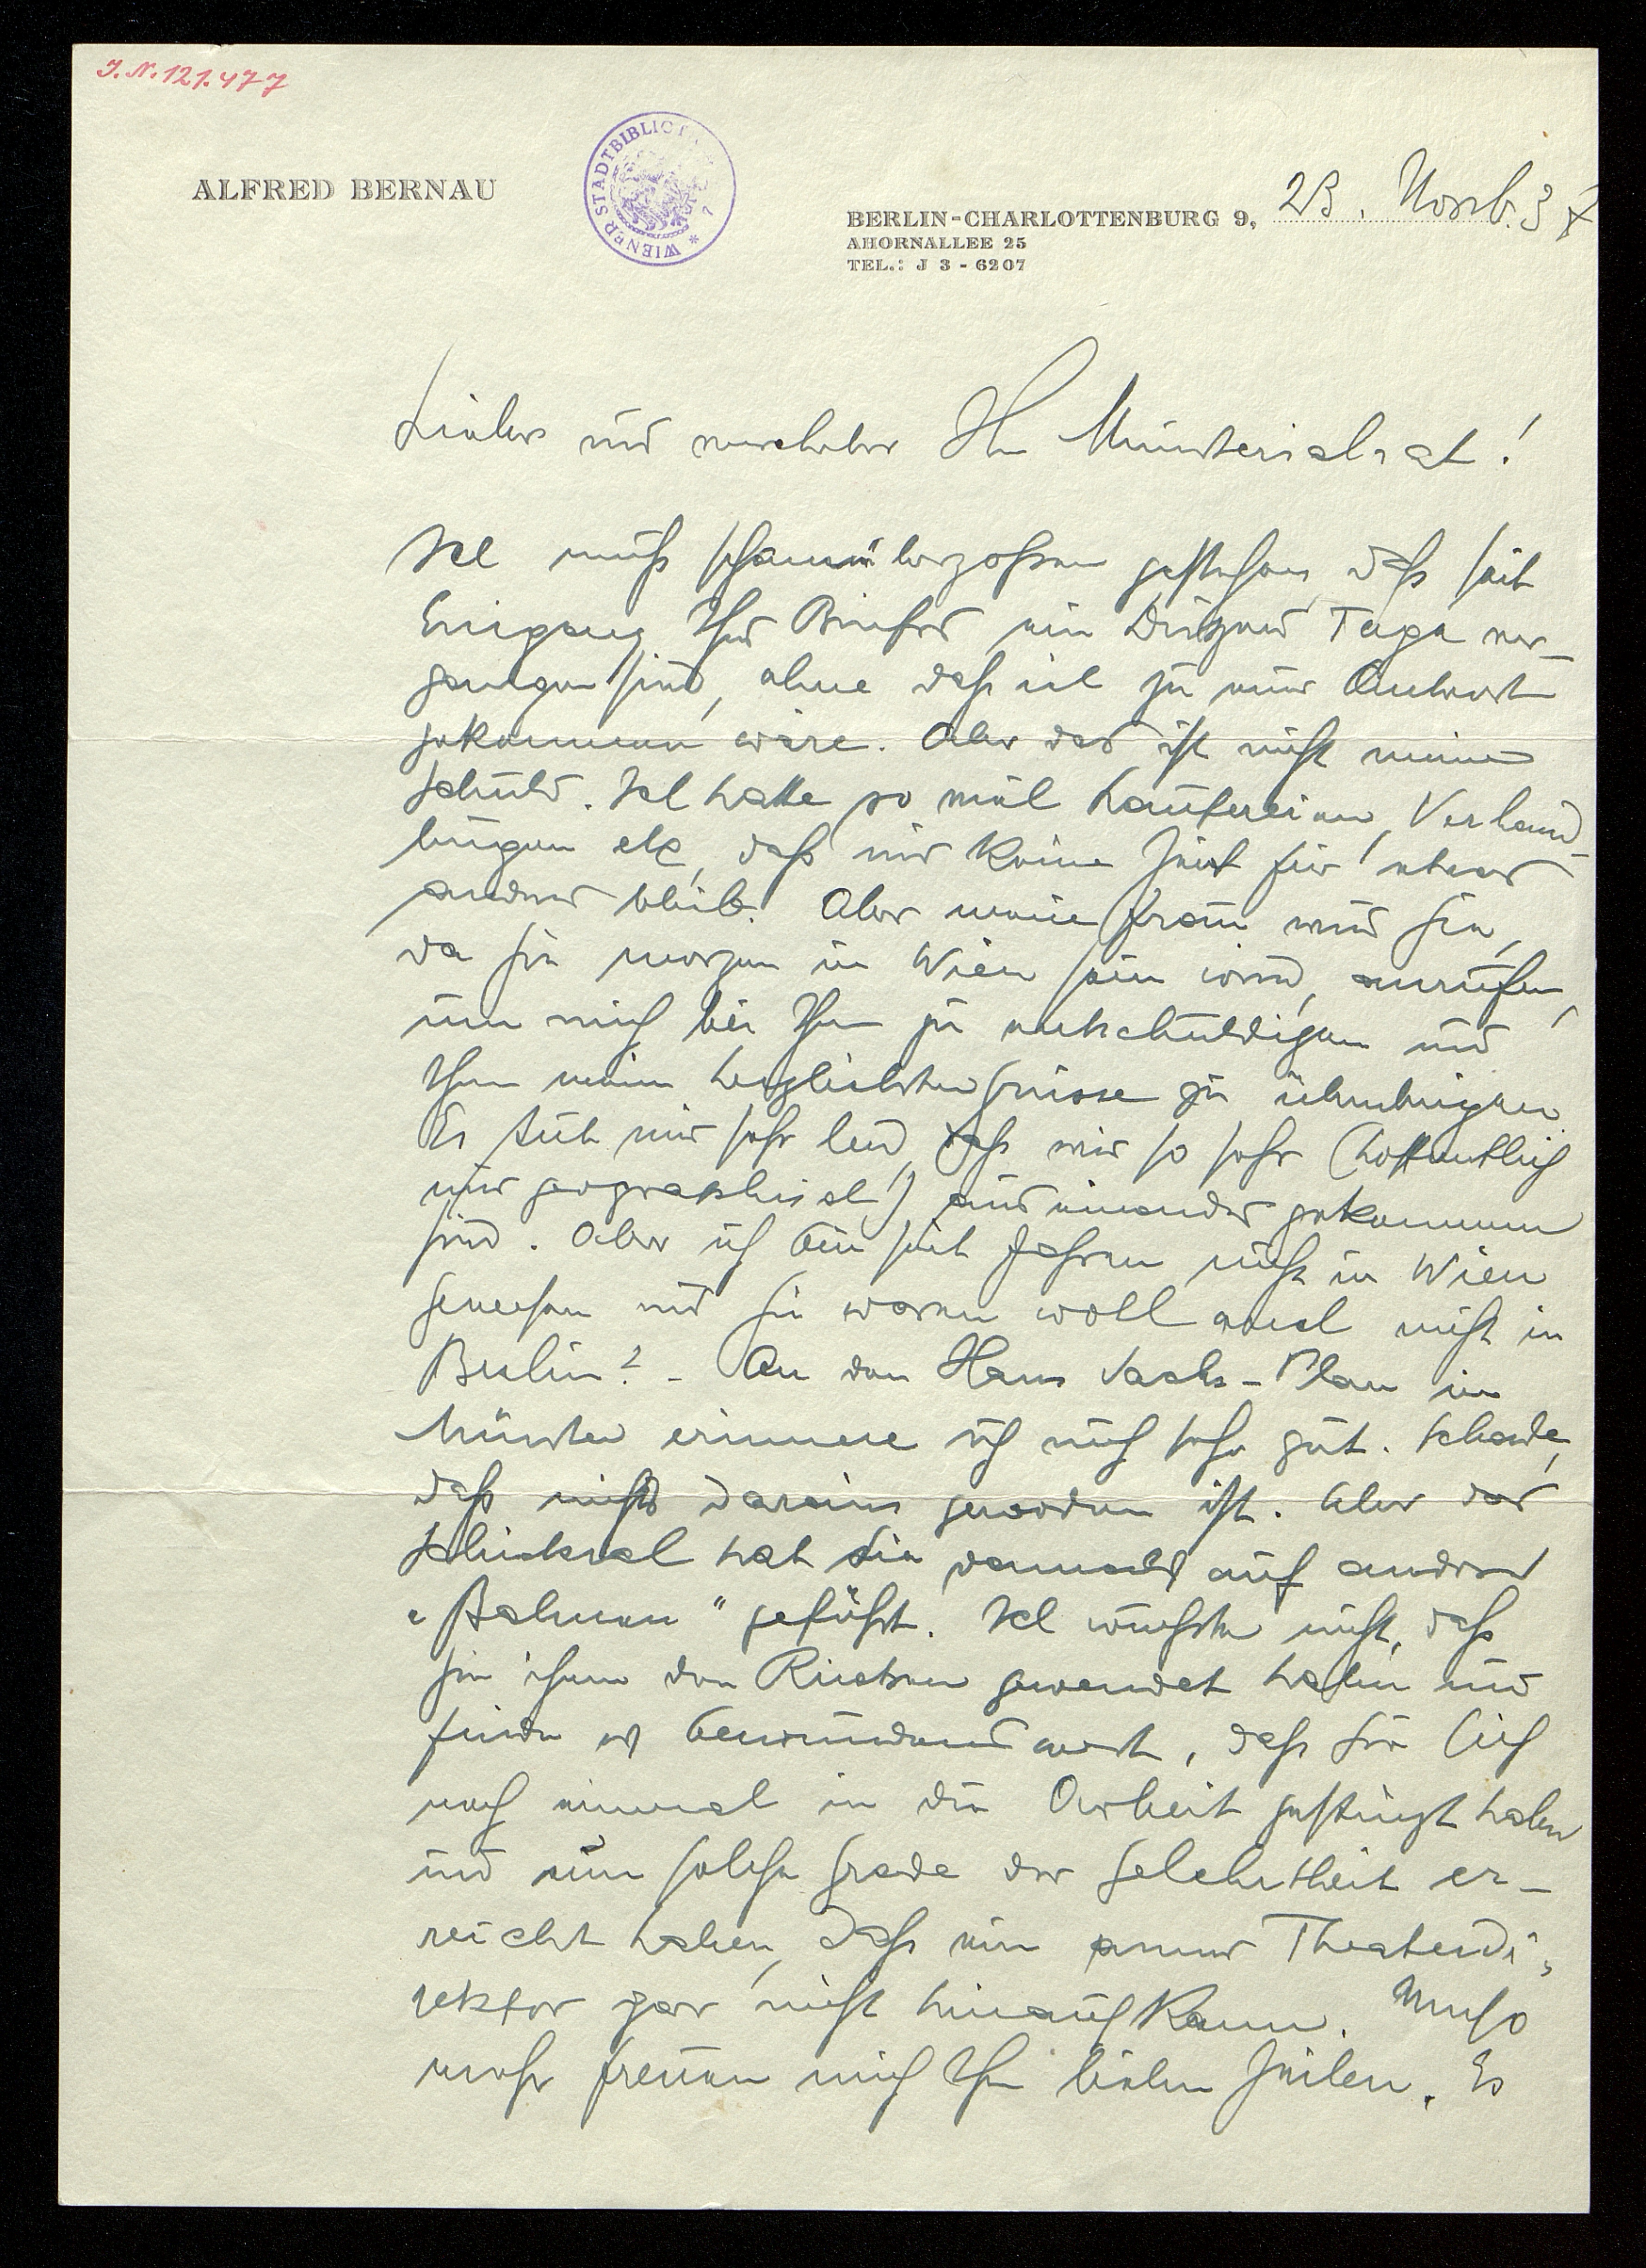 J.N. 121.477
ALFRED BERNAU
WIENER STADTBIBLIOT
BERLIN-CHARLOTTENBURG 9, 23. Novb. 37
AHORNALLEE 25
TEL.: J 3 - 6207
Lieber und verehrter Hr Ministerialrat!
Ich muß schamübergossen gestehen, daß seit
Eingang Ihres Briefes ein Dutzend Tage ver-
gangen sind, ohne daß ich zu einer Antwort
gekommen wäre. Aber das ist nicht meine
Schuld. Ich hatte so viel Laufereien, Verhand-
lungen etc, daß mir keine Zeit für etwas
anderes blieb. Aber meine Frau wird Sie,
da sie morgen in Wien sein wird, anrufen,
um mich bei Ihnen zu entschuldigen und
Ihnen meine herzlichsten Grüsse zu überbringen.
Es tut mir sehr leid, daß wir so sehr (hoffentlich
nur geographisch!) auseinander gekommen
sind. Aber ich bin seit Jahren nicht in Wien
gewesen und Sie waren wohl auch nicht in
Berlin? - An den Hans Sachs-Plan in
Münster erinnere ich mich sehr gut. Schade,
daß nichts daraus geworden ist. Aber das
Schicksal hat Sie damals auf andere
"Bahnen" geführt. Ich wußte nicht, daß
Sie ihnen den Rücken gewendet haben und
finde es bewundernswert, daß Sie sich
noch einmal in die Arbeit gestürzt haben
und nun solche Grade der Gelehrtheit er-
reicht haben, daß ein armer Theaterdi-
rektor gar nicht hinauf kann. Umso
mehr freuen mich Ihre lieben Zeilen. Es